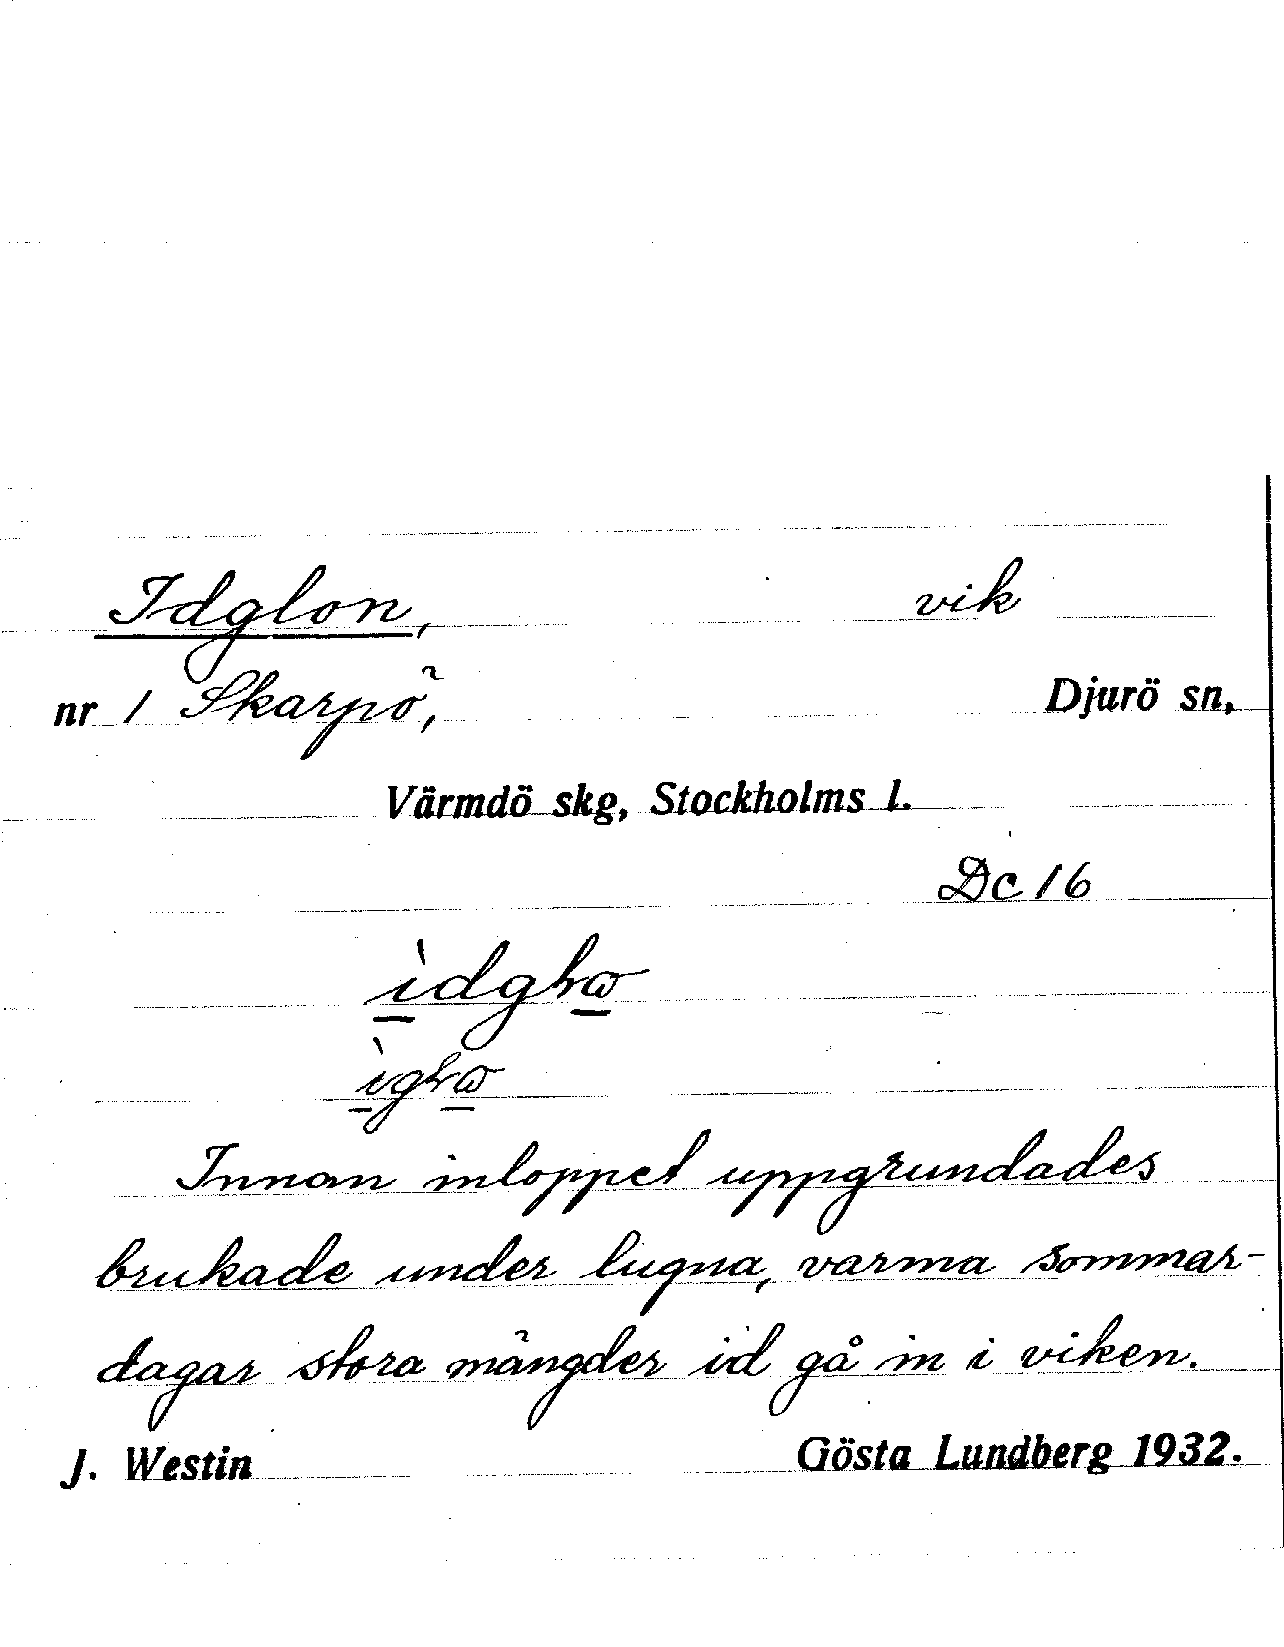 Idglon, vik
nr 1 Skarpö, Djurö sn,
Värmdö skg, Stockholms l.
Dc 16
Innan inloppet uppgrundades
brukade under lugna, varma sommar-
dagar stora mängder id gå in i viken.
J. Westin Gösta Lundberg 1932.